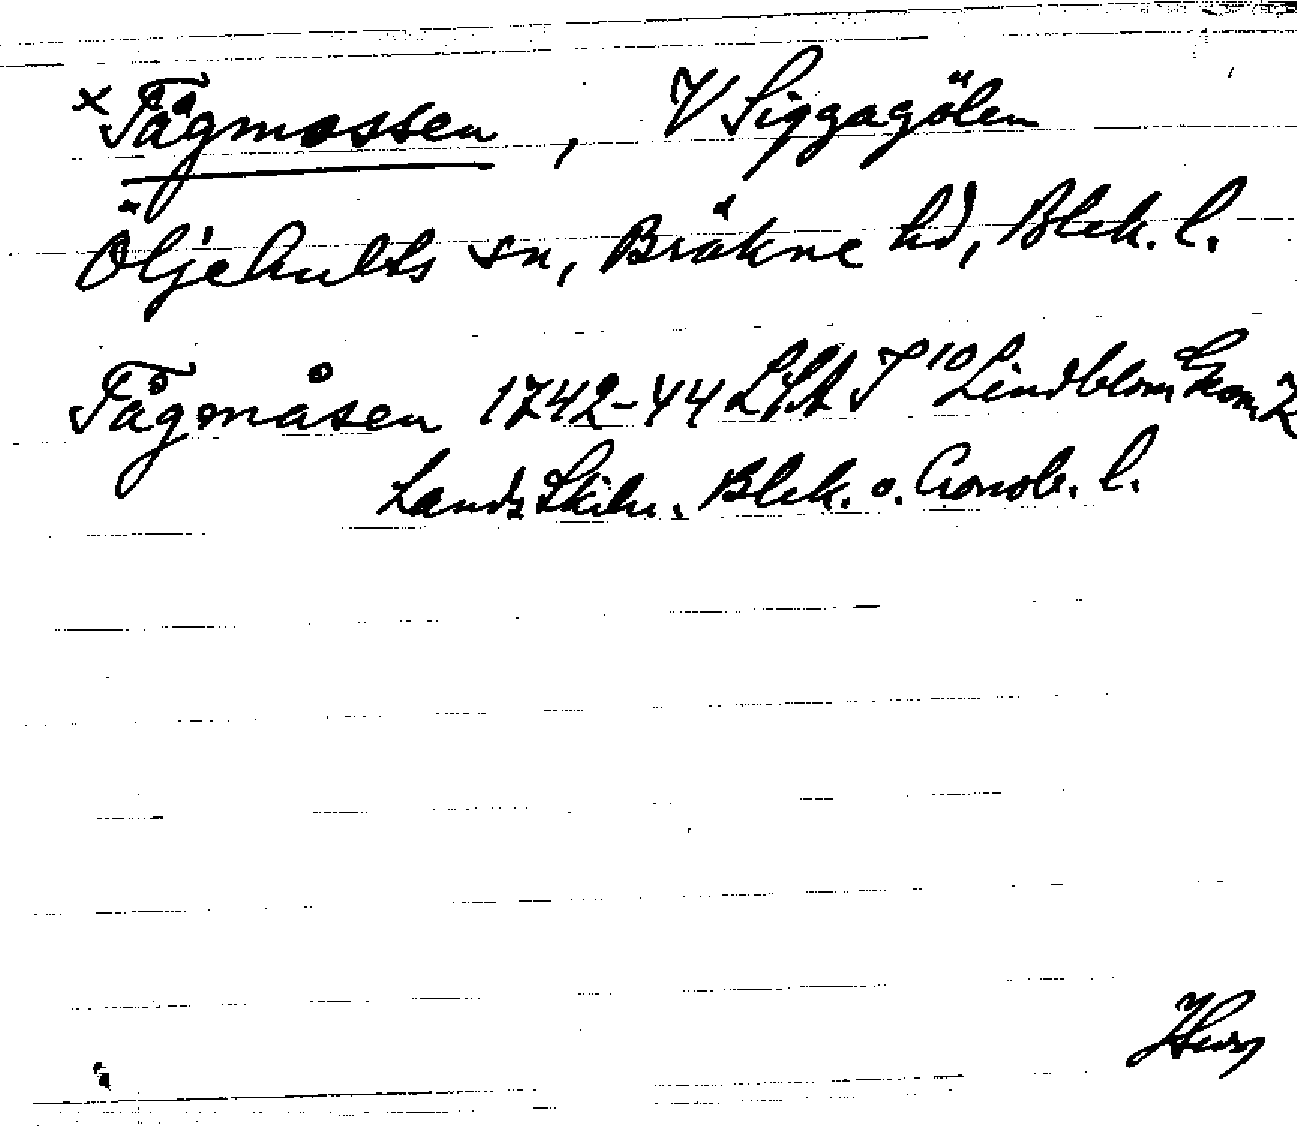 × Tågmossen, V Siggagölen
Öljehults sn, Bräkne hd, Blek. l.
Tågmåsen 1742-44 LSA J 10 Lindblom
Lands Skiln. Blek. o. Cronob. l.